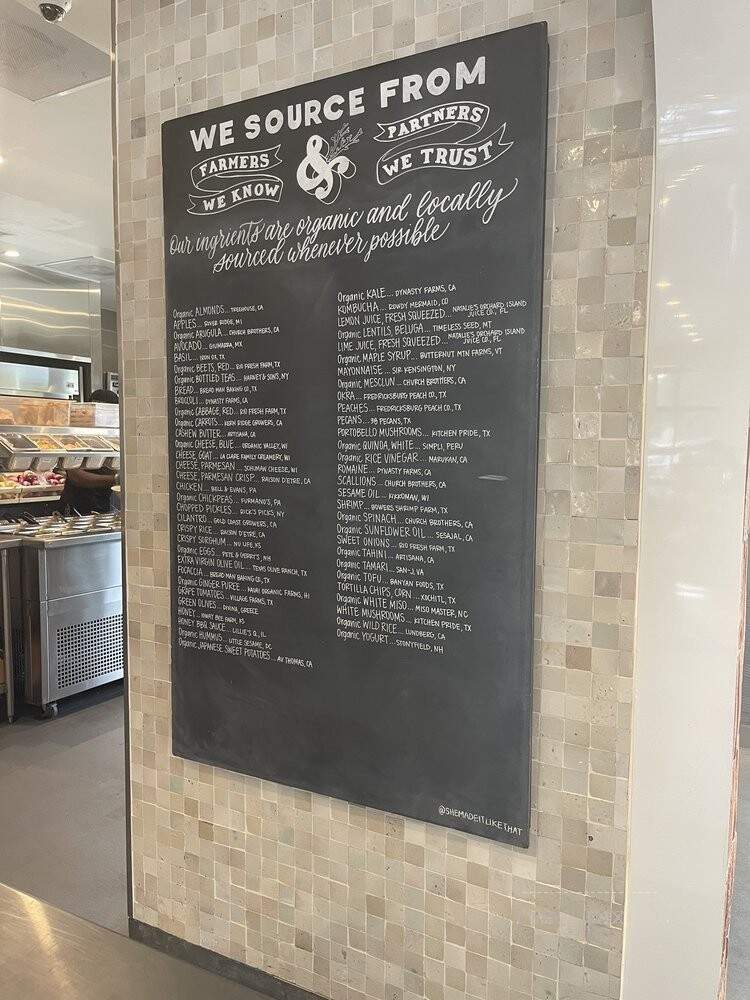 WE SOURCE FROM
FARMERS
WE KNOW
&
PARTNERS
WE TRUST
Our ingrients are organic and locally
sourced whenever possible
Organic ALMONDS... TREEHOUSE, CA
APPLES... RIVER RIDGE, MI
Organic ARUGULA... CHURCH BROTHERS, CA
AVOCADO... GIUMARRA, MX
BASIL... IRON OX, TX
Organic BEETS, RED... RIO FRESH FARM, TX
Organic BOTTLED TEAS... HARVEY & SONS, NY
BREAD... BREAD MAN BAKING CO, TX
BROCCOLI... DYNASTY FARMS, CA
Organic CABBAGE, RED... RIO FRESH FARM, TX
Organic CARROTS... KERN RIDGE GROWERS, CA
CASHEW BUTTER... ARTISANA, CA
Organic CHEESE, BLUE... ORGANIC VALLEY, WI
CHEESE, GOAT... LA CLARE FAMILY CREAMERY, WI
CHEESE, PARMESAN... SCHUMAN CHEESE, WI
CHEESE, PARMESAN CRISP... RAISON D'ETRE, CA
CHICKEN... BELL & EVANS, PA
Organic CHICKPEAS... FURMANO'S, PA
CHOPPED PICKLES... RICK'S PICKS, NY
CILANTRO... GOLD COAST GROWERS, CA
CRISPY RICE... RAISON D'ETRE, CA
CRISPY SORGHUM... NU LIFE, KS
Organic EGGS... PETE & GERRY'S, NH
EXTRA VIRGIN OLIVE OIL... TEXAS OLIVE RANCH, TX
FOCACCIA... BREAD MAN BAKING CO, TX
Organic GINGER PUREE... KAUAI ORGANIC FARMS, HI
GRAPE TOMATOES... VILLAGE FARMS, TX
GREEN OLIVES... DIVINA, GREECE
HONEY... BEE FARM, KS
HONEY BBQ SAUCE... LILLIE'S Q, IL
Organic HUMMUS... LITTLE SESAME, DC
Organic JAPANESE SWEET POTATOES... AV THOMAS, CA
Organic KALE... DYNASTY FARMS, CA
KOMBUCHA... ROWDY MERMAID, CO
LEMON JUICE, FRESH SQUEEZED... NATALIE'S ORCHARD ISLAND
JUICE CO., FL
Organic LENTILS, BELUGA... TIMELESS SEED, MT
LIME JUICE, FRESH SQUEEZED... NATALIE'S ORCHARD ISLAND
JUICE CO., FL
Organic MAPLE SYRUP... BUTTERNUT MTN FARMS, VT
MAYONNAISE... SIR KENSINGTON, NY
Organic MESCLUN... CHURCH BROTHERS, CA
OKRA... FREDRICKSBURG PEACH CO, TX
PEACHES... FREDRICKSBURG PEACH CO., TX
PECANS... PECANS, TX
PORTOBELLO MUSHROOMS... KITCHEN PRIDE, TX
Organic QUINOA, WHITE... SIMPLI, PERU
Organic RICE VINEGAR... MARUKAN, CA
ROMAINE... DYNASTY FARMS, CA
SCALLIONS... CHURCH BROTHERS, CA
SESAME OIL... KIKKOMAN, WI
SHRIMP... BOWERS SHRIMP FARM, TX
Organic SPINACH... CHURCH BROTHERS, CA
Organic SUNFLOWER OIL... SESAJAL, CA
SWEET ONIONS... RIO FRESH FARM, TX
Organic TAHINI... ARTISANA, CA
Organic TAMARI... SAN-J, VA
Organic TOFU... BANYAN FOODS, TX
TORTILLA CHIPS, CORN... XOCHITL, TX
Organic WHITE MISO... MISO MASTER, NC
WHITE MUSHROOMS... KITCHEN PRIDE, TX
Organic WILD RICE... LUNDBERG, CA
Organic YOGURT... STONYFIELD, NH
@SHEMADEITLIKETHAT